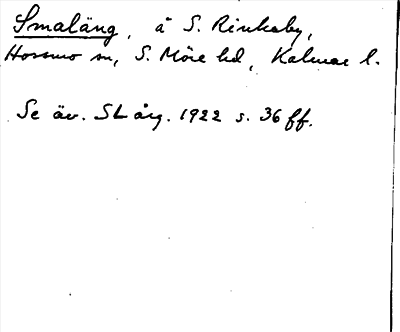 Smaläng, å S. Rinkaby,
Hossmo sn, S. Möre hd, Kalmar l.
Se äv. SL årg. 1922 s. 36 ff.